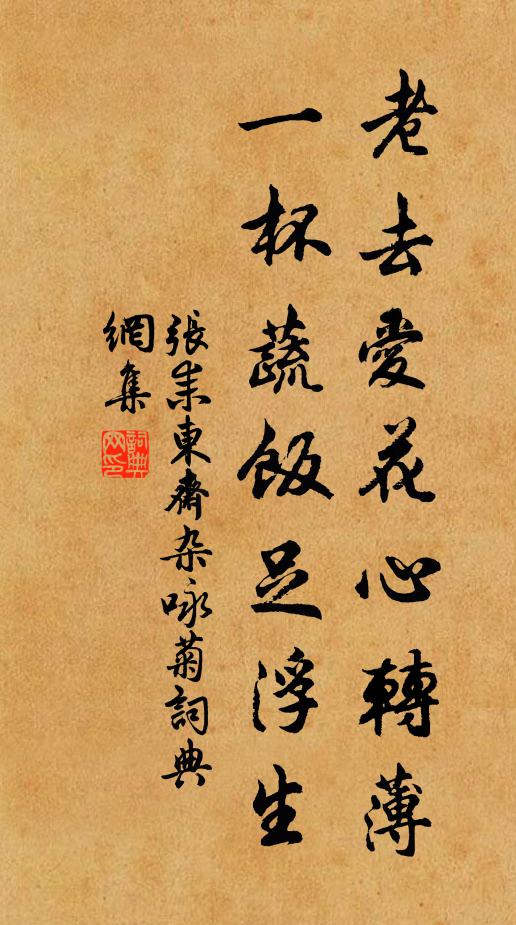 老去愛花心轉薄
一杯蔬飯足浮生
張耒東齋杂咏菊詞典
網集
詞典
网印